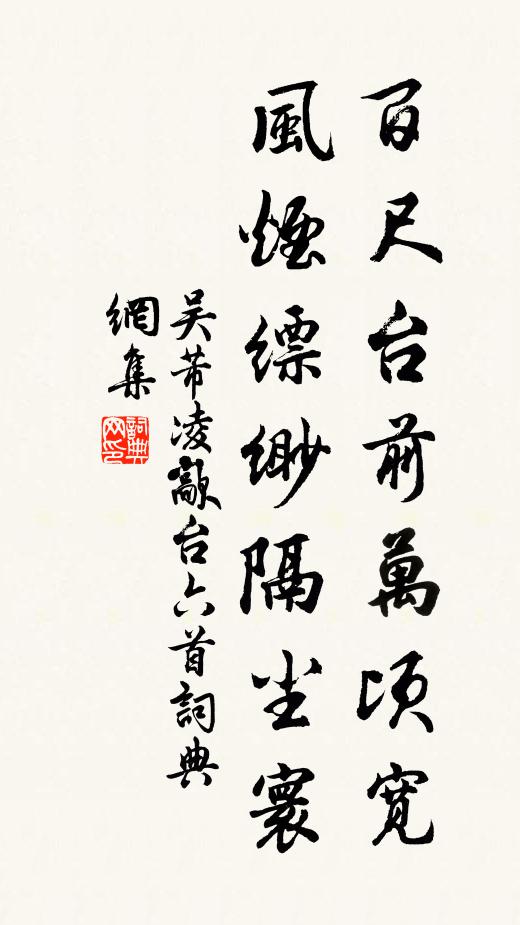 百尺台前萬頃寬
風煙縹緲隔尘寰
吴芾凌歊台六首詞典
網集
詞典
网印